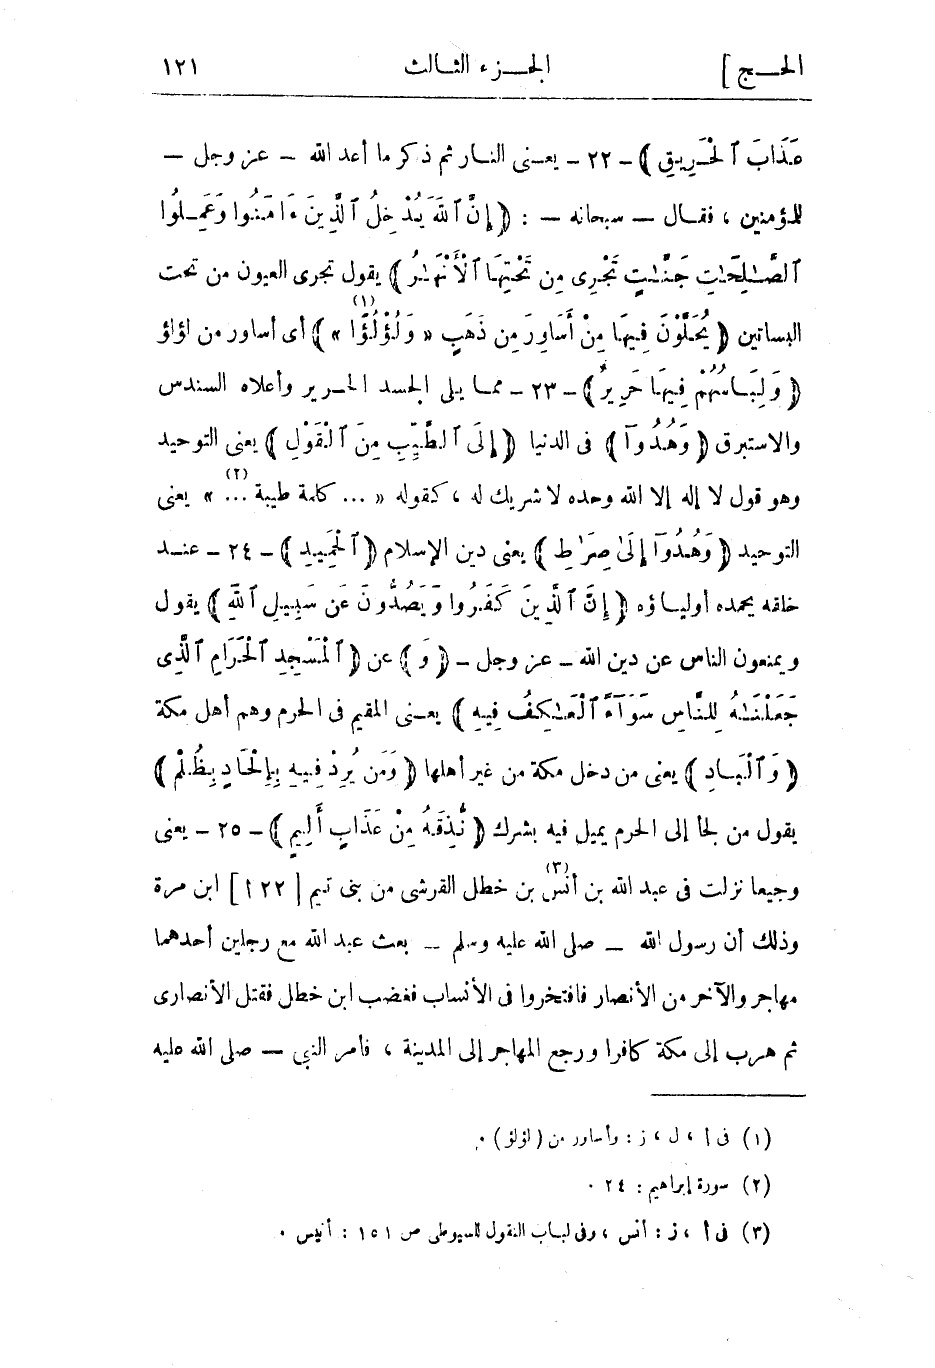 الحـج ] الجـزء الثـالث ١٢١
عَذَابَ ٱلْحَرِيقِ ﴾ - ٢٢ - يعـنى النـار ثم ذكر ما أعد الله - عز وجل -
للمؤمنين ، فقـال - سبحانه - : ﴿ إِنَّ ٱللَّهَ يُدْخِلُ ٱلَّذِينَ ءَامَنُوا وَعَمِلُوا
ٱلصَّـٰلِحَـٰتِ جَنَّـٰتٍ تَجْرِى مِن تَحْتِهَا ٱلْأَنْهَـٰرُ ﴾ يقول تجرى العيون من تحت
البساتين ﴿ يُحَلَّوْنَ فِيهَا مِنْ أَسَاوِرَ مِن ذَهَبٍ « وَلُؤْلُؤًا (١) » ﴾ أى أساور من لؤلؤ
﴿ وَلِبَاسُهُمْ فِيهَا حَرِيرٌ ﴾ - ٢٣ - ممـا يلى الجسد الحـرير وأعلاه السندس
والاستبرق ﴿ وَهُدُوٓا ﴾ فى الدنيا ﴿ إِلَى ٱلطَّيِّبِ مِنَ ٱلْقَوْلِ ﴾ يعنى التوحيد
وهو قول لا إله إلا الله وحده لا شريك له ، كقوله « ... كلمة طيبة ... (٢) » يعنى
التوحيد ﴿ وَهُدُوٓا إِلَىٰ صِرَٰطِ ﴾ يعنى دين الإسلام ﴿ ٱلْحَمِيدِ ﴾ - ٢٤ - عنـد
خلقه يحمده أوليـاؤه ﴿ إِنَّ ٱلَّذِينَ كَفَرُوا وَيَصُدُّونَ عَن سَبِيلِ ٱللَّهِ ﴾ يقول
ويمنعون الناس عن دين الله - عز وجل - ﴿ وَ ﴾ عن ﴿ ٱلْمَسْجِدِ ٱلْحَرَامِ ٱلَّذِى
جَعَلْنَـٰهُ لِلنَّاسِ سَوَآءً ٱلْعَـٰكِفُ فِيهِ ﴾ يعـنى المقيم فى الحرم وهم أهل مكة
﴿ وَٱلْبَـادِ ﴾ يعنى من دخل مكة من غير أهلها ﴿ وَمَن يُرِدْ فِيهِ بِإِلْحَادٍ بِظُلْمٍ ﴾
يقول من لجأ إلى الحرم يميل فيه بشرك ﴿ نُّذِقْهُ مِنْ عَذَابٍ أَلِيمٍ ﴾ - ٢٥ - يعنى
وجيعا نزلت فى عبد الله بن أنس (٣) بن خطل القرشى من بنى تيم [ ١٢٢ ] ابن مرة
وذلك أن رسول الله - صلى الله عليه وسلم - بعث عبد الله مع رجلين أحدهما
مهاجر والآخر من الأنصار فافتخروا فى الأنساب فغضب ابن خطل فقتل الأنصارى
ثم هرب إلى مكة كافرا ورجع المهاجر إلى المدينة ، فأمر النبي - صلى الله عليه
(١) فى أ ، ل ، ز : وأساور من ( لؤلؤ ) .
(٢) سورة إبراهيم : ٢٤ .
(٣) فى أ ، ز : أنس ، وفى لباب النقول للسيوطى ص ١٥١ : أنيس .